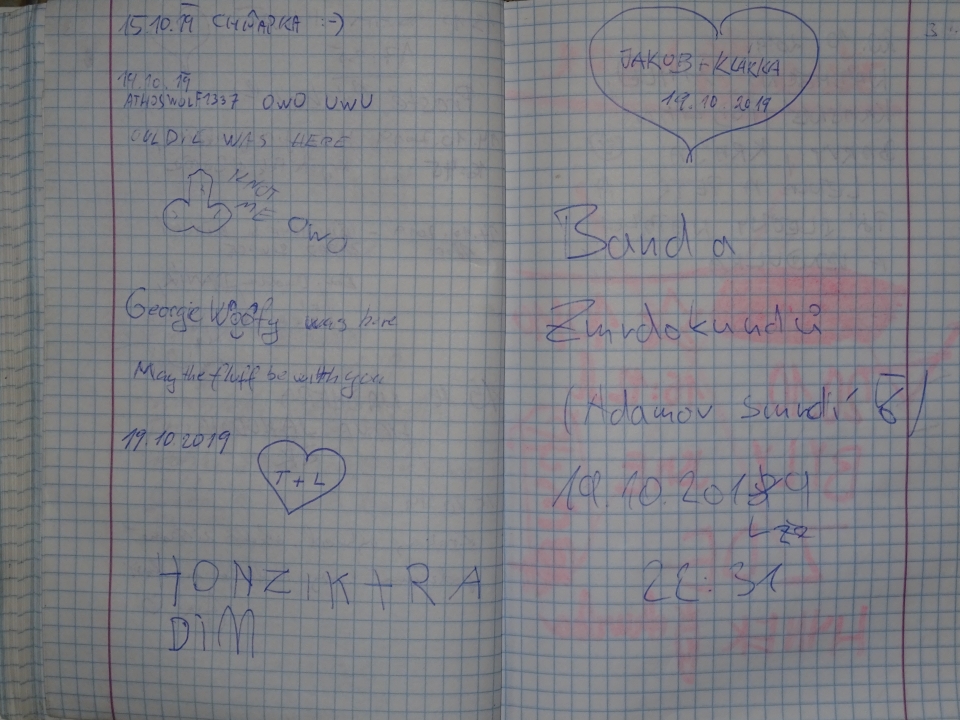 15.10.19 :-)
19.10.19
ATHOSWOLF1337 OwO UwU
WAS HERE
KNOT
ME
OwO
George Woofy was here
May the fluff be with you
19.10.2019
T + L
HONZIK + RA
DIM
JAKUB + KLÁRKA
19.10.2019
Banda
Zmrdokundů
(Adamov smrdí 6)
19.10.2019
22:31